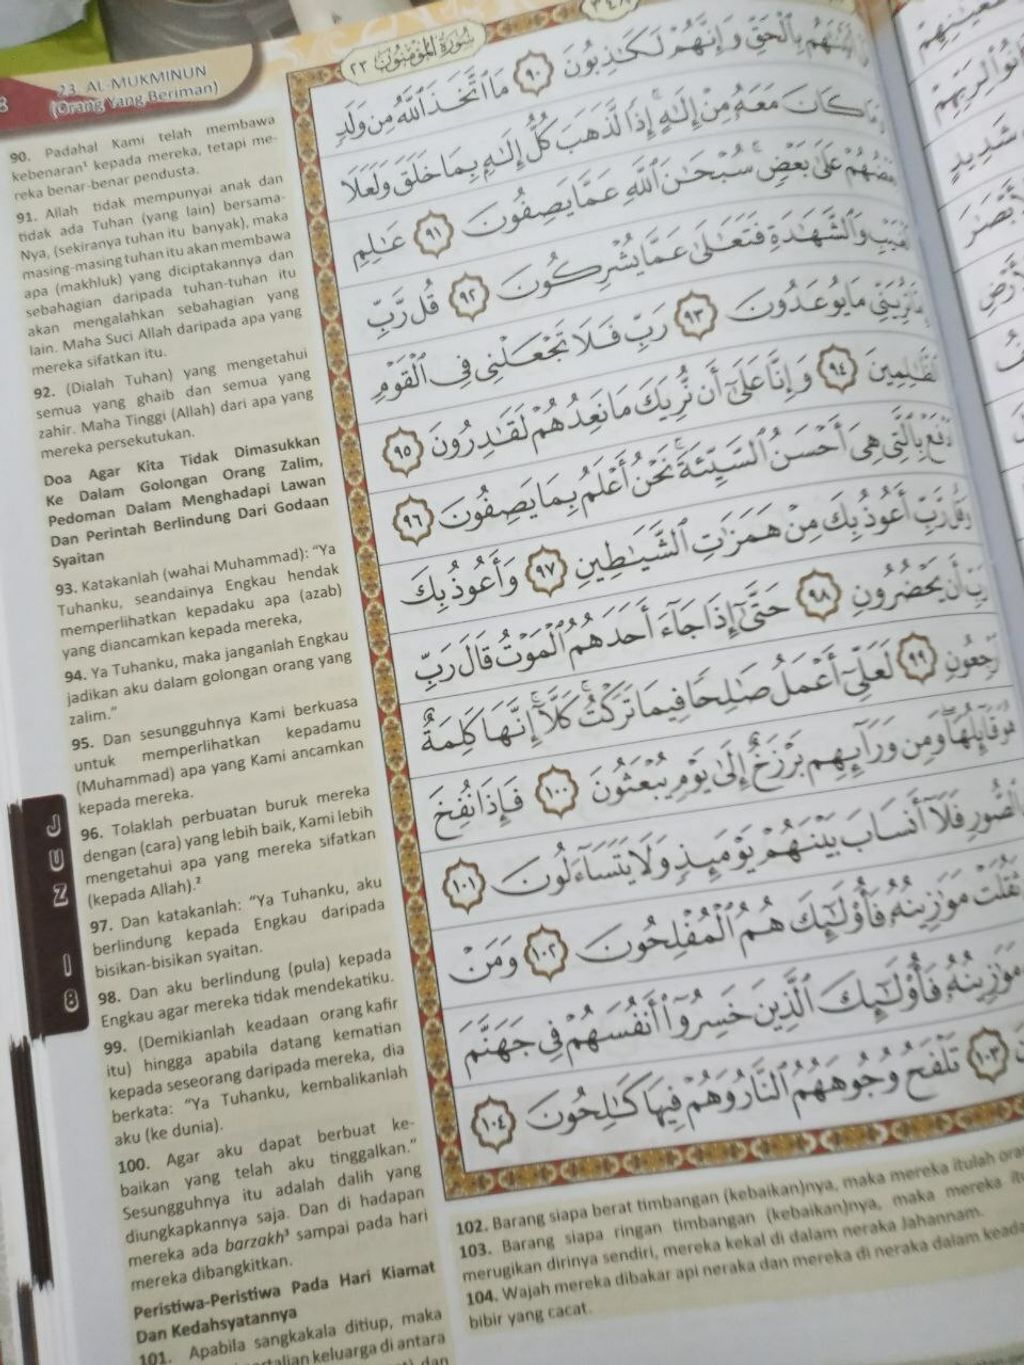 23. AL-MUKMINUN
(Orang Yang Beriman)
90. Padahal Kami telah membawa
kebenaran¹ kepada mereka, tetapi me-
reka benar-benar pendusta.
91. Allah tidak mempunyai anak dan
tidak ada Tuhan (yang lain) bersama-
Nya, (sekiranya tuhan itu banyak), maka
masing-masing tuhan itu akan membawa
apa (makhluk) yang diciptakannya dan
sebahagian daripada tuhan-tuhan itu
akan mengalahkan sebahagian yang
lain. Maha Suci Allah daripada apa yang
mereka sifatkan itu.
92. (Dialah Tuhan) yang mengetahui
semua yang ghaib dan semua yang
zahir. Maha Tinggi (Allah) dari apa yang
mereka persekutukan.
Doa Agar Kita Tidak Dimasukkan
Ke Dalam Golongan Orang Zalim,
Pedoman Dalam Menghadapi Lawan
Dan Perintah Berlindung Dari Godaan
Syaitan
93. Katakanlah (wahai Muhammad): "Ya
Tuhanku, seandainya Engkau hendak
memperlihatkan kepadaku apa (azab)
yang diancamkan kepada mereka,
94. Ya Tuhanku, maka janganlah Engkau
jadikan aku dalam golongan orang yang
zalim."
95. Dan sesungguhnya Kami berkuasa
untuk memperlihatkan kepadamu
(Muhammad) apa yang Kami ancamkan
kepada mereka.
96. Tolaklah perbuatan buruk mereka
dengan (cara) yang lebih baik, Kami lebih
mengetahui apa yang mereka sifatkan
(kepada Allah).²
97. Dan katakanlah: "Ya Tuhanku, aku
berlindung kepada Engkau daripada
bisikan-bisikan syaitan.
98. Dan aku berlindung (pula) kepada
Engkau agar mereka tidak mendekatiku.
99. (Demikianlah keadaan orang kafir
itu) hingga apabila datang kematian
kepada seseorang daripada mereka, dia
berkata: "Ya Tuhanku, kembalikanlah
aku (ke dunia).
100. Agar aku dapat berbuat ke-
baikan yang telah aku tinggalkan."
Sesungguhnya itu adalah dalih yang
diungkapkannya saja. Dan di hadapan
mereka ada barzakh³ sampai pada hari
mereka dibangkitkan.
Peristiwa-Peristiwa Pada Hari Kiamat
Dan Kedahsyatannya
101. Apabila sangkakala ditiup, maka
keluarga di antara
dan
JUZ 18
سُورَةُ المُؤْمِنُونَ ٢٣
٣٤٨
بِالْحَقِّ وَإِنَّهُمْ لَكَٰذِبُونَ ٩٠ مَا ٱتَّخَذَ ٱللَّهُ مِن وَلَدٍ
وَمَا كَانَ مَعَهُۥ مِنْ إِلَٰهٍ ۚ إِذًا لَّذَهَبَ كُلُّ إِلَٰهٍۭ بِمَا خَلَقَ وَلَعَلَا
بَعْضُهُمْ عَلَىٰ بَعْضٍ ۚ سُبْحَٰنَ ٱللَّهِ عَمَّا يَصِفُونَ ٩١ عَٰلِمِ
ٱلْغَيْبِ وَٱلشَّهَٰدَةِ فَتَعَٰلَىٰ عَمَّا يُشْرِكُونَ ٩٢ قُل رَّبِّ
مَا يُوعَدُونَ ٩٣ رَبِّ فَلَا تَجْعَلْنِى فِى ٱلْقَوْمِ
ٱلظَّٰلِمِينَ ٩٤ وَإِنَّا عَلَىٰٓ أَن نُّرِيَكَ مَا نَعِدُهُمْ لَقَٰدِرُونَ ٩٥
ٱدْفَعْ بِٱلَّتِى هِىَ أَحْسَنُ ٱلسَّيِّئَةَ ۚ نَحْنُ أَعْلَمُ بِمَا يَصِفُونَ ٩٦
وَقُل رَّبِّ أَعُوذُ بِكَ مِنْ هَمَزَٰتِ ٱلشَّيَٰطِينِ ٩٧ وَأَعُوذُ بِكَ
رَبِّ أَن يَحْضُرُونِ ٩٨ حَتَّىٰٓ إِذَا جَآءَ أَحَدَهُمُ ٱلْمَوْتُ قَالَ رَبِّ
ٱرْجِعُونِ ٩٩ لَعَلِّىٓ أَعْمَلُ صَٰلِحًا فِيمَا تَرَكْتُ ۚ كَلَّآ ۚ إِنَّهَا كَلِمَةٌ
هُوَ قَآئِلُهَا ۖ وَمِن وَرَآئِهِم بَرْزَخٌ إِلَىٰ يَوْمِ يُبْعَثُونَ ١٠٠ فَإِذَا نُفِخَ
ٱلصُّورِ فَلَآ أَنسَابَ بَيْنَهُمْ يَوْمَئِذٍ وَلَا يَتَسَآءَلُونَ ١٠١
ثَقُلَتْ مَوَٰزِينُهُۥ فَأُو۟لَٰٓئِكَ هُمُ ٱلْمُفْلِحُونَ ١٠٢ وَمَنْ
مَوَٰزِينُهُۥ فَأُو۟لَٰٓئِكَ ٱلَّذِينَ خَسِرُوٓا۟ أَنفُسَهُمْ فِى جَهَنَّمَ
١٠٣ تَلْفَحُ وُجُوهَهُمُ ٱلنَّارُ وَهُمْ فِيهَا كَٰلِحُونَ ١٠٤
102. Barang siapa berat timbangan (kebaikan)nya, maka mereka itulah
103. Barang siapa ringan timbangan (kebaikan)nya, maka mereka
merugikan dirinya sendiri, mereka kekal di dalam neraka Jahannam.
104. Wajah mereka dibakar api neraka dan mereka di neraka dalam
bibir yang cacat.